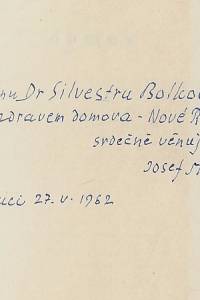 Dr Silvestru
zdravem domova - Nové
srdečně věnuj
Josef
27.V.1962